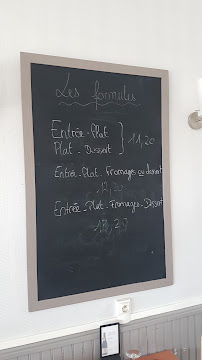 Les formules
Entrée - Plat } 11,20
Plat - Dessert
Entrée - Plat - Fromages ou dessert
Entrée - Plat - Fromages - Dessert